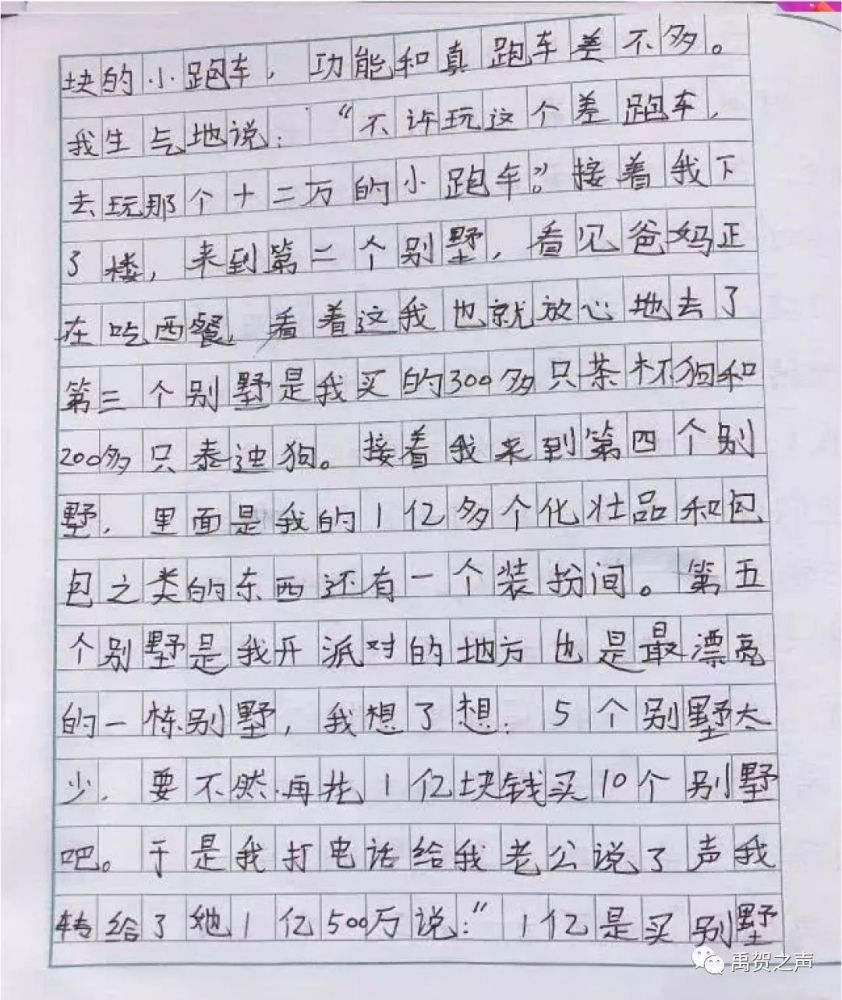 块的小跑车，功能和真跑车差不多。
我生气地说：“不许玩这个差跑车，
去玩那个十二万的小跑车。”接着我下
了楼，来到第二个别墅，看见爸妈正
在吃西餐，看着这我也就放心地去了
第三个别墅是我买的300多只茶杯狗和
200多只泰迪狗。接着我来到第四个别
墅，里面是我的1亿多个化壮品和包
包之类的东西还有一个装扮间。第五
个别墅是我开派对的地方也是最漂亮
的一栋别墅，我想了想：5个别墅太
少，要不然再花1亿块钱买10个别墅
吧。于是我打电话给我老公说了声我
转给了她1亿500万说：“1亿是买别墅
禹贺之声